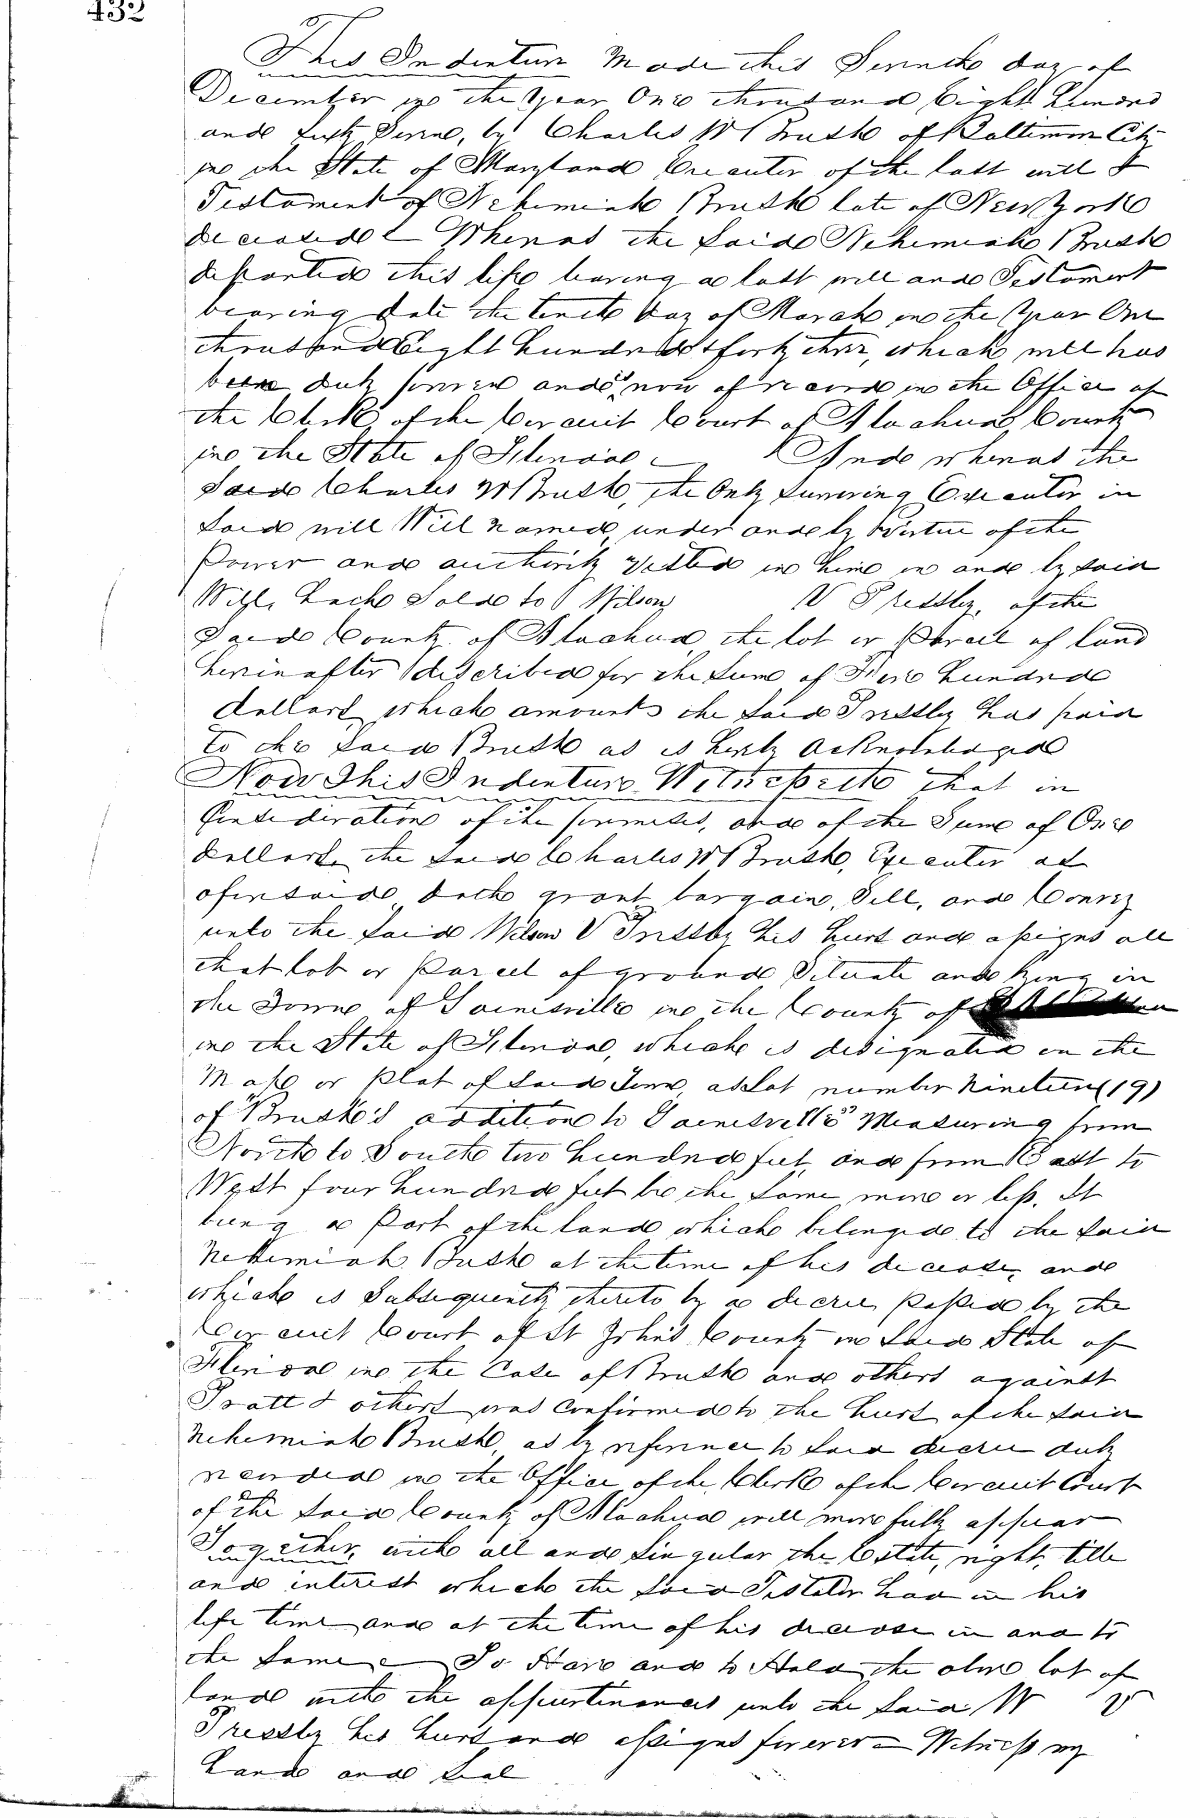 432
This Indenture Made this Seventh day of
December in the Year One thousand Eight Hundred
and Sixty Seven, by Charles W Brush of Baltimore City
in the State of Maryland Executor of the last will &
Testament of Nehemiah Brush late of New York
deceased Whereas the Said Nehemiah Brush
departed this life leaving a last will and Testament
bearing date the tenth day of March in the Year One
thousand Eight hundred & forty three, which will has
been duly proven and is now of record in the Office of
the Clerk of the Circuit Court of Alachua County
in the State of Florida And whereas the
Said Charles W Brush, the Only Surviving Executor in
Said will Will named, under and by Virtue of the
Power and authority Vested in him in and by said
Will, hath Sold to Wilson V Pressley, of the
Said County of Alachua, the lot or Parcel of land
hereinafter described for the Sum of Five hundred
dollars, which amounts the Said Pressley has paid
to the Said Brush as is hereby acknowledged
Now This Indenture Witnesseth that in
Consideration of the premises, and of the Sum of One
dollars, the Said Charles W Brush, Executor as
aforesaid, doth grant, bargain, Sell, and Convey
unto the Said Wilson V Pressley his heirs and assigns all
that lot or Parcel of ground Situate and lying in
the Town of Gainesville in the County of
in the State of Florida, which is designated on the
Map or Plat of Said Town, as Lot number Nineteen (19)
of "Brush's addition to Gainesville" Measuring from
North to South two hundred feet, and from East to
West four hundred feet be the Same more or less. It
being a Part of the land which belonged to the said
Nehemiah Brush at the time of his decease, and
which is Subsequently thereto by a decree passed by the
Circuit Court of St John's County in Said State of
Florida in the Case of Brush and others against
Pratt & others was Confirmed to the heirs of the said
Nehemiah Brush, as by reference to Said decree duly
recorded in the Office of the Clerk of the Circuit Court
of the Said County of Alachua will more fully appear
Together, with all and Singular the Estate, right, title
and interest which the Said Testator had in his
life time and at the time of his decease in and to
the Same To Have and to Hold the above lot of
land with the appurtenances unto the Said W V
Pressley his heirs and assigns forever = Witness my
hand and Seal